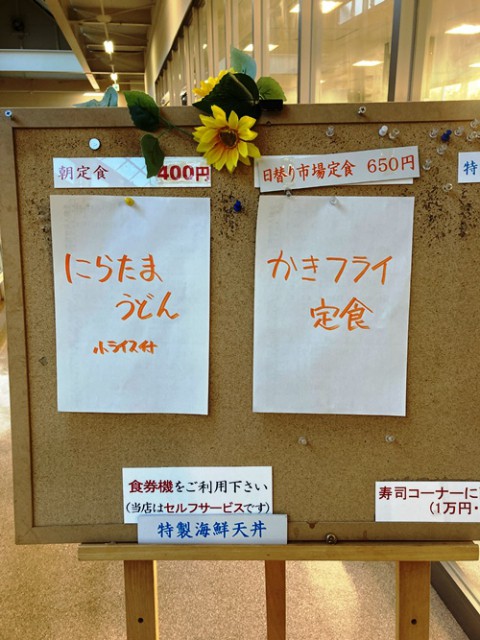 朝定食 400円
日替り市場定食 650円
特
にらたま
うどん
小ライス付
かきフライ
定食
食券機をご利用下さい
(当店はセルフサービスです)
特製海鮮天丼
寿司コーナーに
(1万円・